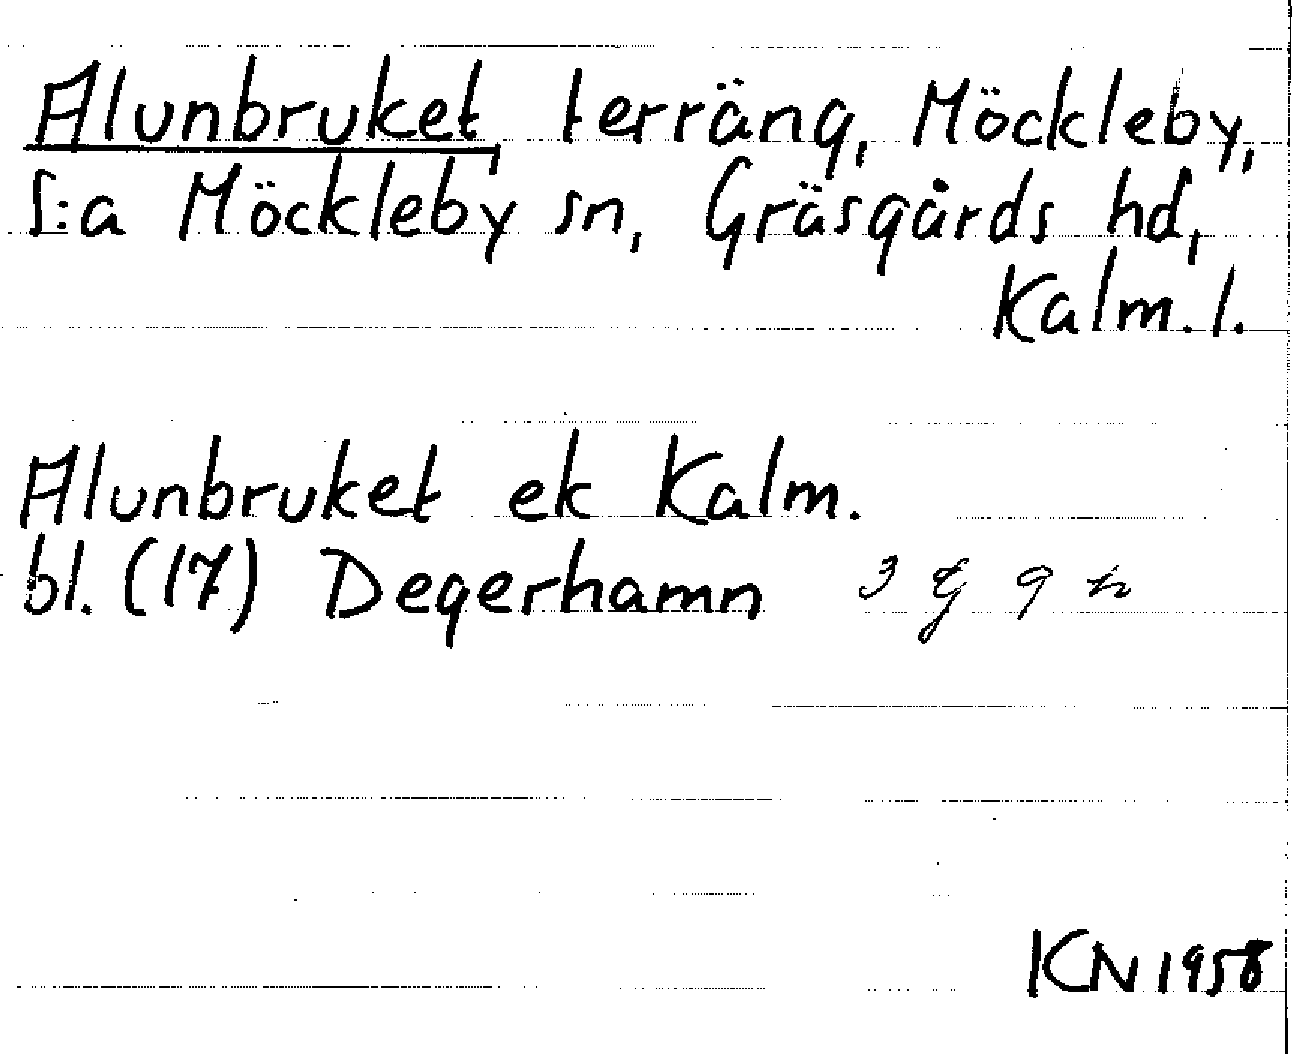 Alunbruket, terräng, Möckleby,
S:a Möckleby sn, Gräsgårds hd,
Kalm. l.
Alunbruket ek Kalm.
bl. (17) Degerhamn 3 G 9 h
KN 1958